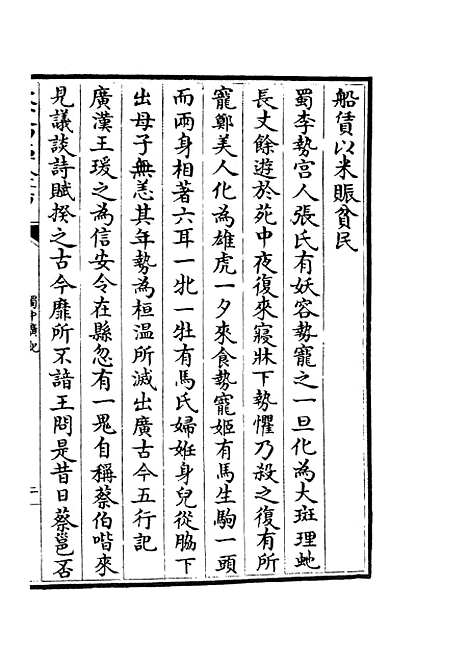 船賃以米賑貧民
蜀李勢宫人張氏有妖容勢寵之一旦化為大斑理虵
長丈餘遊於苑中夜復來寢牀下勢懼乃殺之復有所
寵鄭美人化為雄虎一夕來食勢寵姬有馬生駒一頭
而兩身相著六耳一牝一牡有馬氏婦姙身兒從脇下
出母子無恙其年勢為桓温所滅出廣古今五行記
廣漢王瑗之為信安令在縣忽有一鬼自稱蔡伯喈來
見議談詩賦揆之古今靡所不諳王問是昔日蔡邕否
蜀中廣記